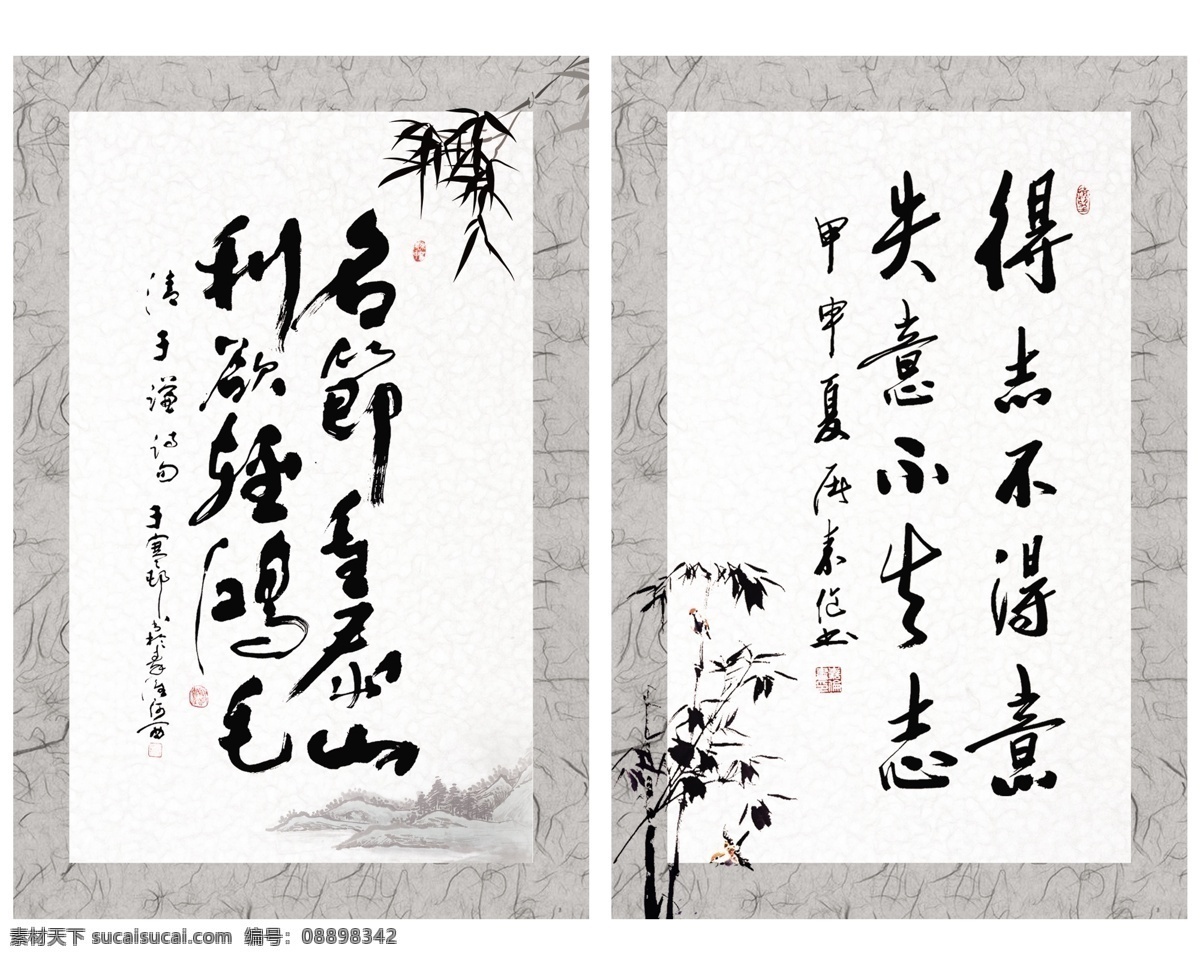 名節重泰山
利欲輕鴻毛
清于謙詩句
得志不得意
失意不失志
甲申夏
素材天下 sucaisucai.com 编号：08898342